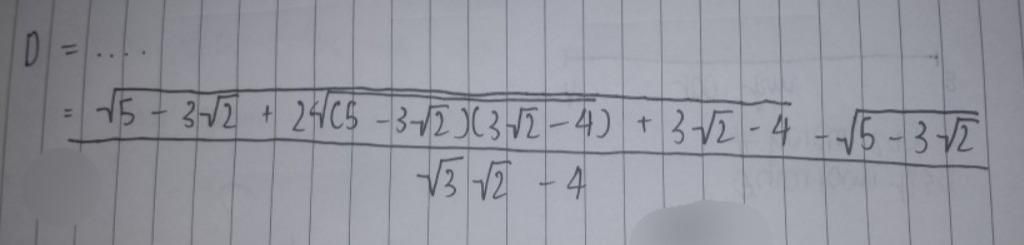 D = ....
= √5 - 3√2 + 2√(5 - 3√2)(3√2 - 4) + 3√2 - 4 - √5 - 3√2
√3 √2 - 4